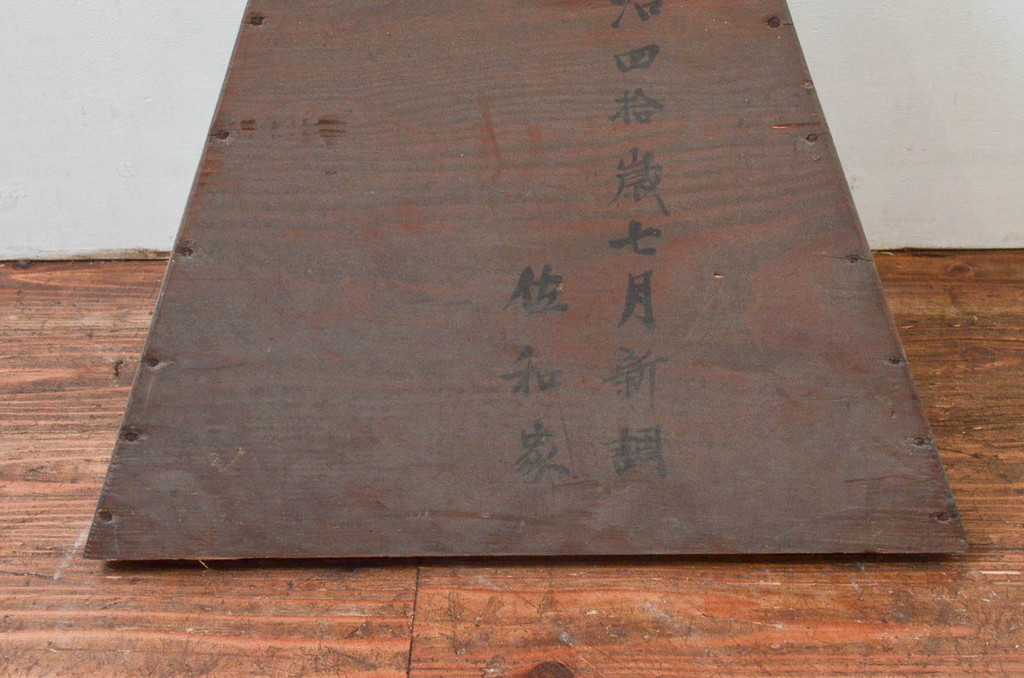 治四拾歳七月新調
佐和家